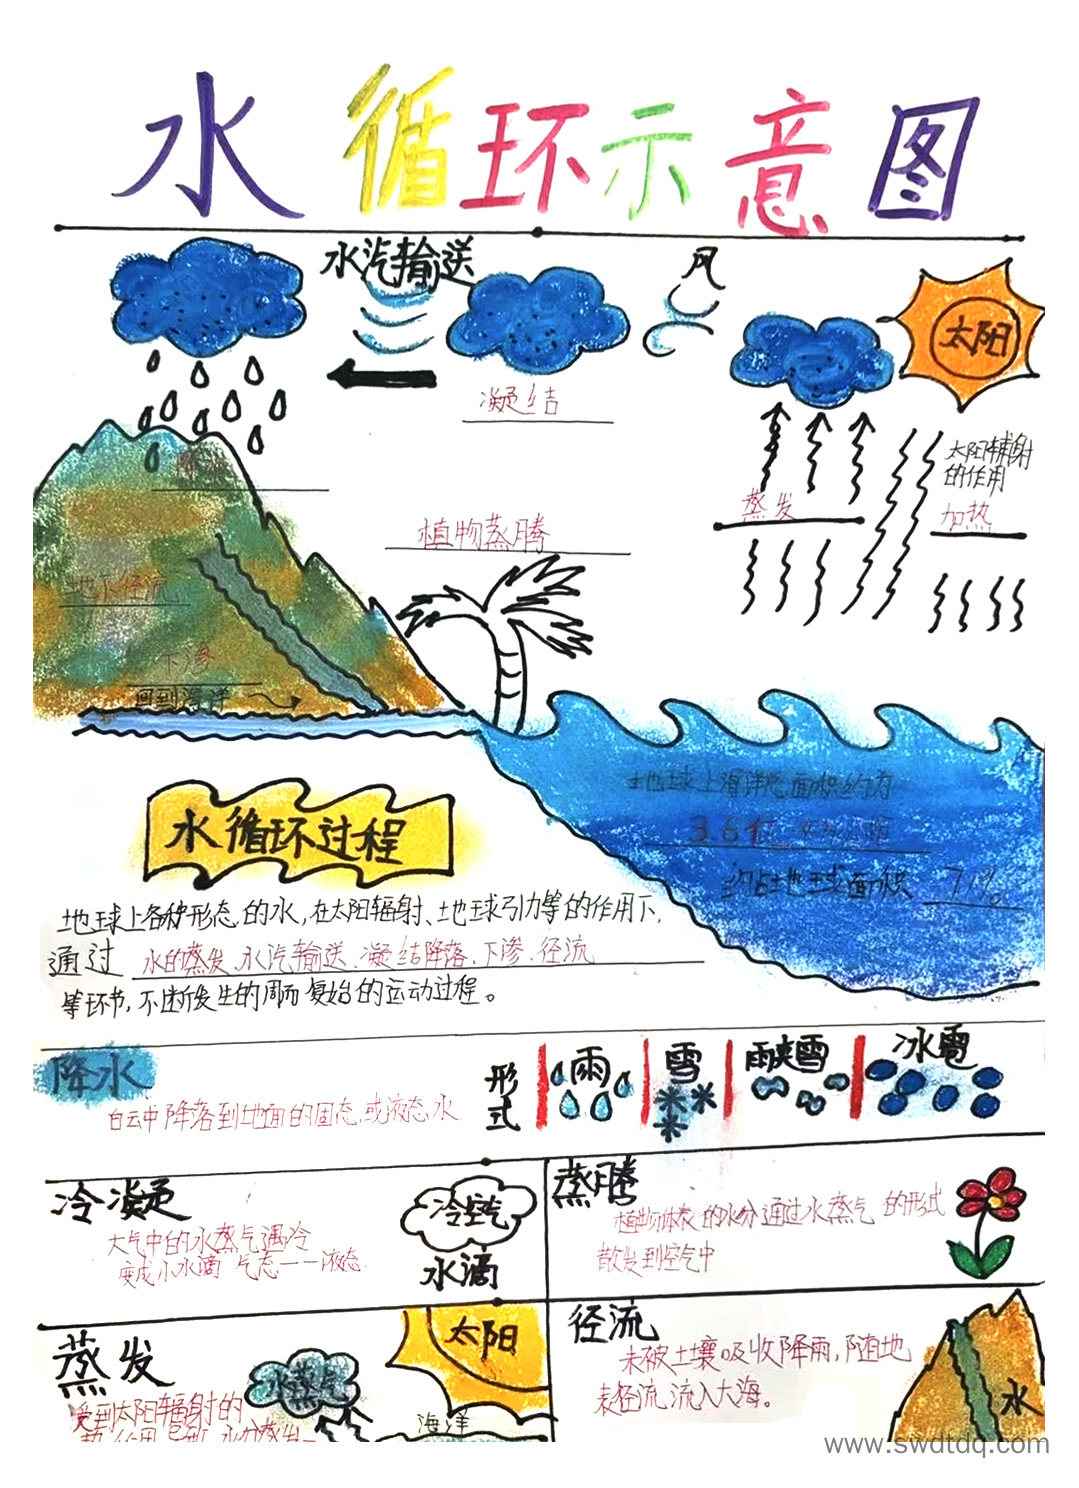 水循环示意图
水汽输送
风
太阳
凝结
太阳辐射
的作用
加热
蒸发
降水
植物蒸腾
地下径流
下渗
回到海洋
地球上海洋总面积约为
3.6亿
约占地球面积 71%
水循环过程
地球上各种形态的水,在太阳辐射、地球引力等的作用下,
通过 水的蒸发、水汽输送、凝结降落、下渗、径流
等环节,不断发生的周而复始的运动过程。
降水
白云中降落到地面的固态,或液态水
形式
雨
雪
雨夹雪
冰雹
冷凝
大气中的水蒸气遇冷
变成小水滴 气态一一液态.
冷空气
水滴
蒸腾
植物体表的水分通过水蒸气 的形式
散发到空气中
蒸发
受到太阳辐射的
水蒸气
太阳
海洋
径流
未被土壤吸收降雨,随地
表径流,流入大海。
水
www.swdtdq.com